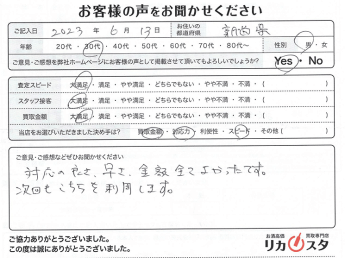 お客様の声をお聞かせください
ご記入日 2023年 6月 13日 お住いの都道府県 新潟県
年齢 20代・30代・40代・50代・60代・70代・80代〜 性別 男・女
ご意見・ご感想を弊社ホームページにお客様の声として掲載させて頂いてもよろしいでしょうか? Yes・No
査定スピード 大満足・満足・やや満足・どちらでもない・やや不満・不満・( )
スタッフ接客 大満足・満足・やや満足・どちらでもない・やや不満・不満・( )
買取金額 大満足・満足・やや満足・どちらでもない・やや不満・不満・( )
当店をお選びいただきました決め手は? 買取金額・対応力・利便性・スピード・その他( )
ご意見・ご感想などぜひお聞かせください
対応の良さ、早さ、金額全てよかったです。
次回もこちらを利用します。
ご協力ありがとうございました。
この度は誠にありがとうございました。
お酒高価 買取専門店
リカスタ